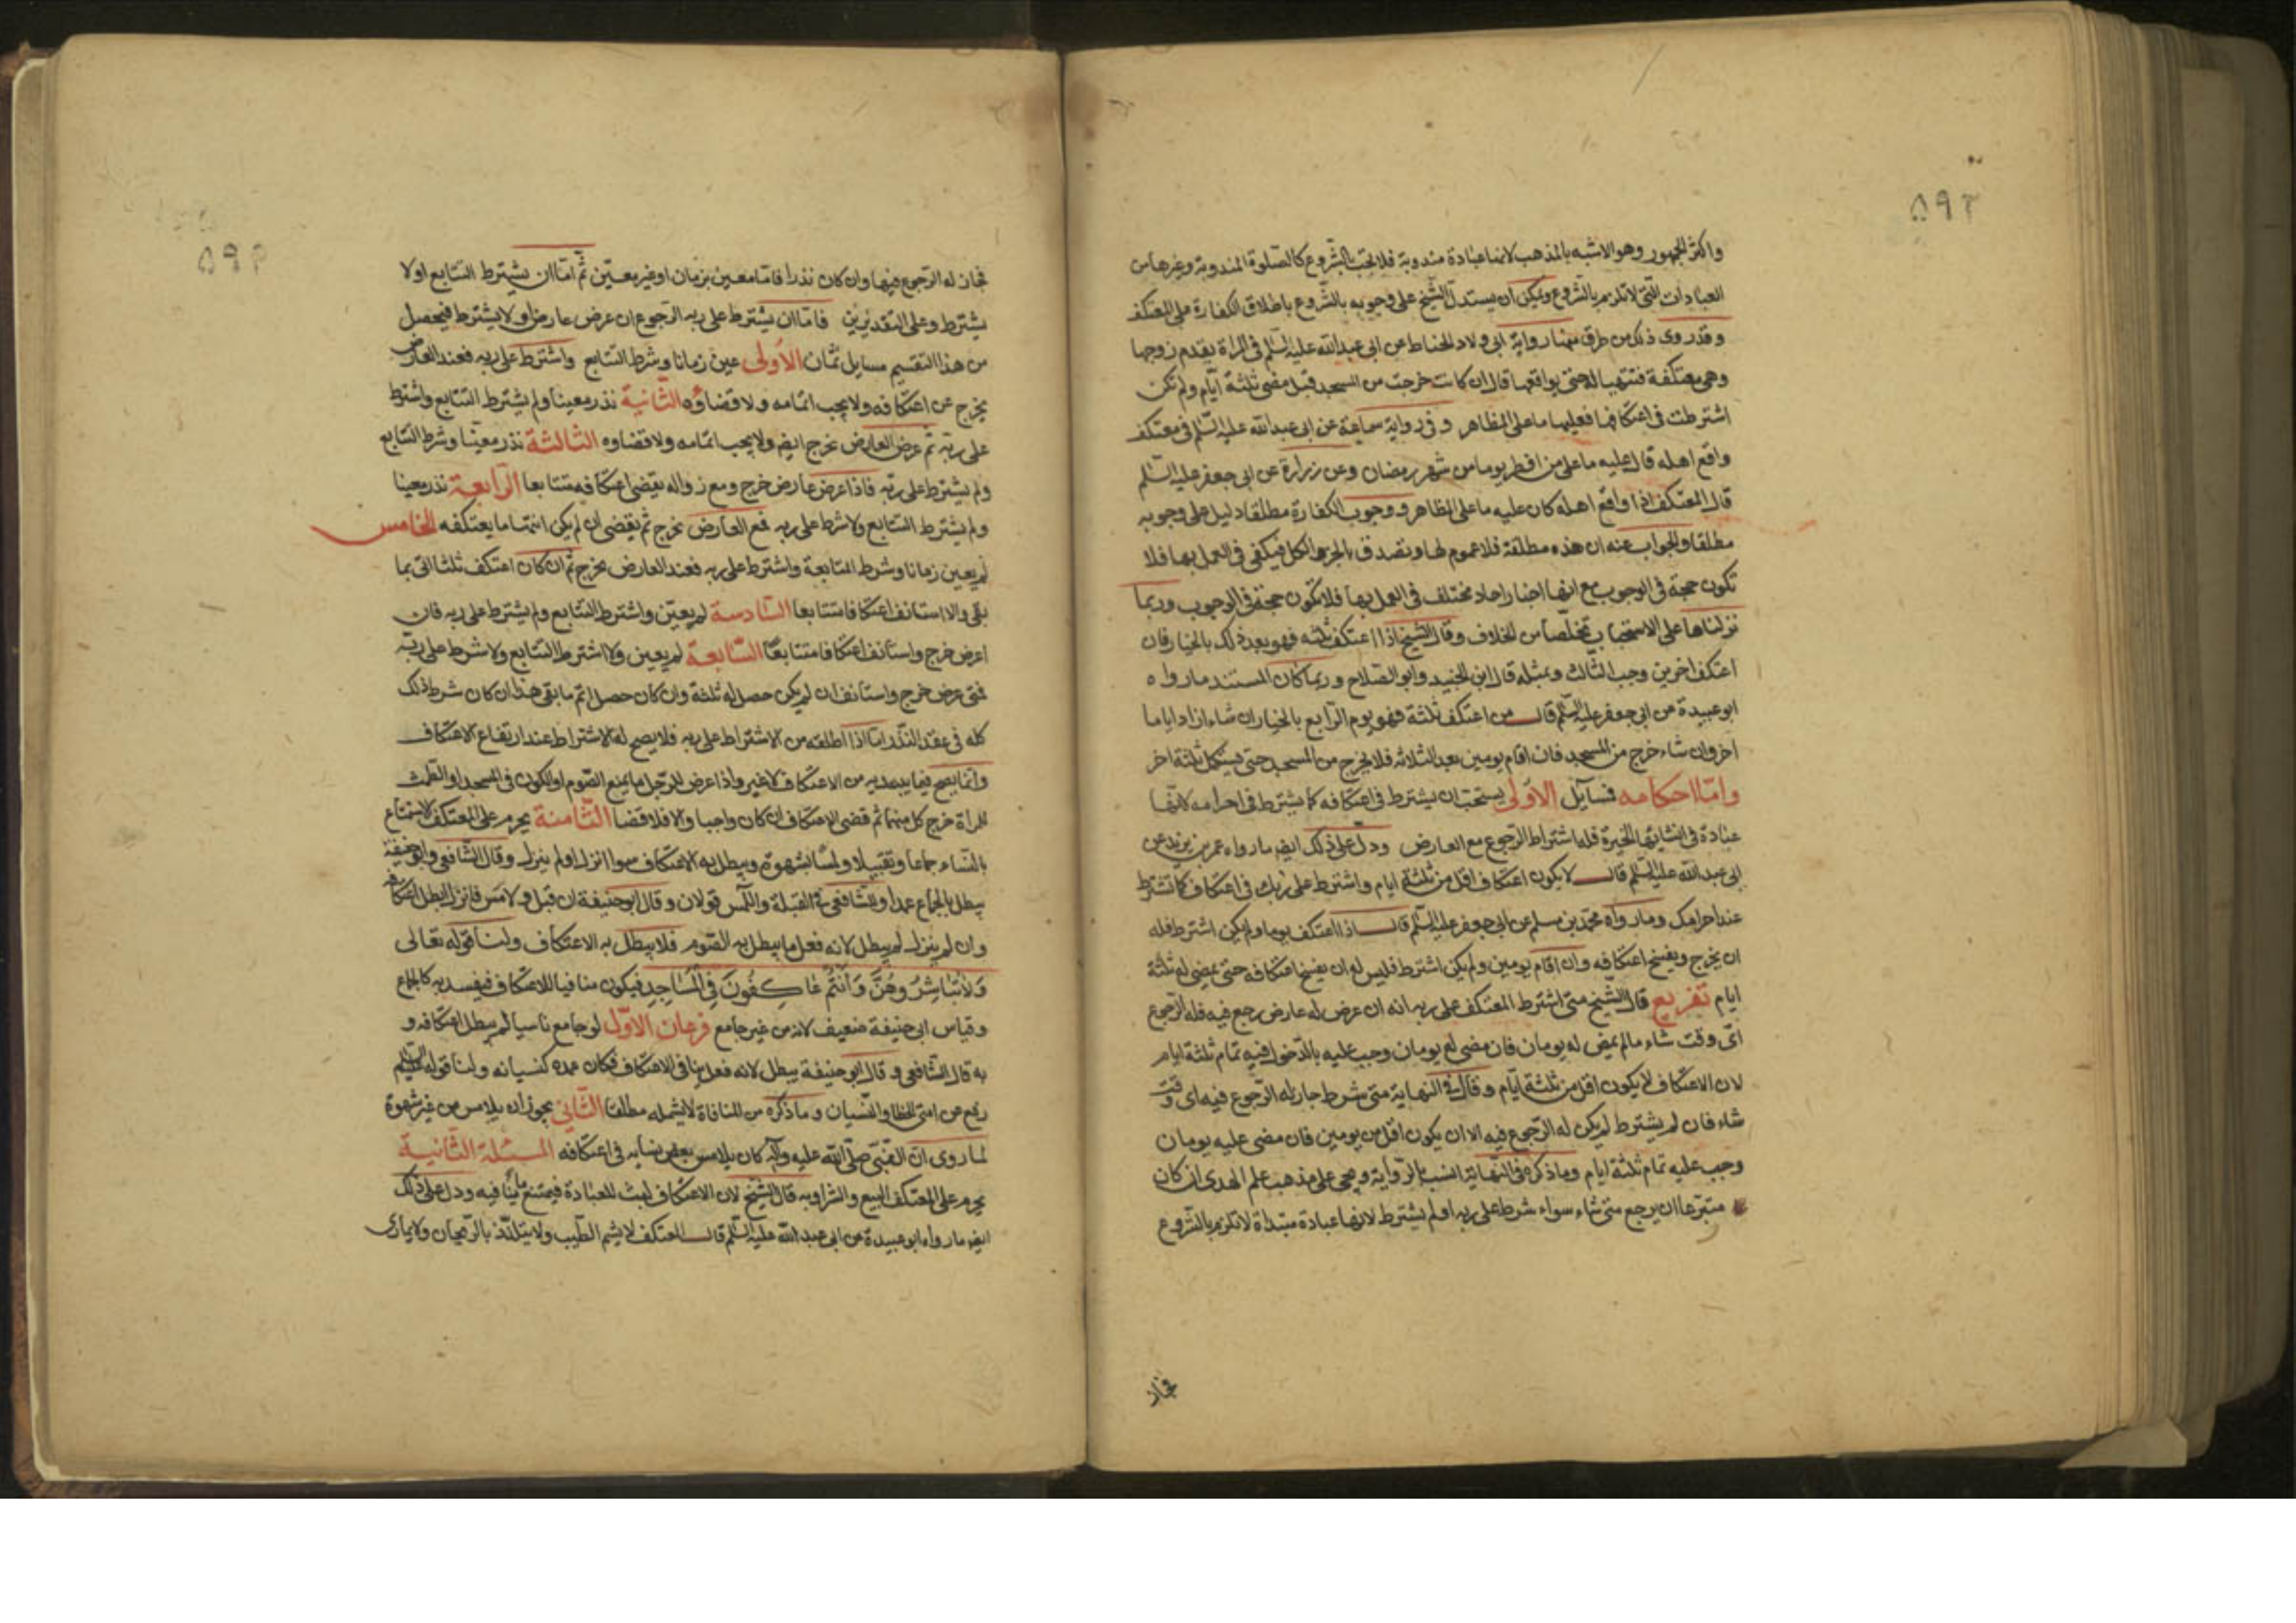 ٥٩٣
واكثر الجمهور وهو الاشبه بالمذهب لانها عبادة مندوبة فلا تجب بالشروع كالصلوة المندوبة وغيرها من
العبادات التي لا تلزم بالشروع ويمكن ان يستدل الشيخ على وجوبه بالشروع باطلاق الكفارة على المعتكف
وقد روى ذلك من طرق منها رواية ابى ولاد الحناط عن ابى عبدالله عليه السلم فى المراة يقدم زوجها
وهى معتكفة فتتهيا له حتى يواقعها قال ان كانت خرجت من المسجد قبل مضى ثلثة ايام ولم تكن
اشترطت فى اعتكافها فعليها ما على المظاهر وفى رواية سماعة عن ابى عبدالله عليه السلم فى معتكف
واقع اهله قال عليه ما على من افطر يوما من شهر رمضان وعن زرارة عن ابى جعفر عليه السلم
قال المعتكف اذا واقع اهله كان عليه ما على المظاهر ووجوب الكفارة مطلقا دليل على وجوبه
مطلقا والجواب عنه ان هذه مطلقة فلا عموم لها وتصدق بالجزء والكل فيكفى فى العمل بها فلا
تكون حجة فى الوجوب مع انها اخبار احاد مختلف فى العمل بها فلا تكون حجة فى الوجوب وربما
نزلناها على الاستحباب تخلصا من الخلاف وقال الشيخ اذا اعتكف ثلثه فهو بعد ذلك بالخيار فان
اعتكف اخرين وجب الثالث وبمثله قال ابن الجنيد وابو الصلاح وربما كان المستند ما رواه
ابو عبيدة عن ابى جعفر عليه السلم قال من اعتكف ثلثة فهو يوم الرابع بالخيار ان شاء ازداد اياما
اخر وان شاء خرج من المسجد فان اقام يومين بعد الثلاثه فلا يخرج من المسجد حتى يستكمل ثلثة اخر
واما احكامه فسآيل الاولى يستحب ان يشترط فى اعتكافه كما يشترط فى احرامه لانها
عبادة فى انشايها الخيرة فله اشتراط الرجوع مع العارض ودل على ذلك ايضا ما رواه عمر بن يزيد عن
ابى عبدالله عليه السلم قال لا يكون اعتكاف اقل من ثلثة ايام واشترط على ربك فى اعتكافك كما تشترط
عند احرامك وما رواه محمد بن مسلم عن ابى جعفر عليه السلم قال اذا اعتكف يوما ولم يكن اشترط فله
ان يخرج ويفسخ اعتكافه وان اقام يومين ولم يكن اشترط فليس له ان يفسخ اعتكافه حتى يمضى له ثلثة
ايام تفريع قال الشيخ متى اشترط المعتكف على ربه انه ان عرض له عارض رجع فيه فله الرجوع
اى وقت شاء ما لم يمض له يومان فان مضى له يومان وجب عليه بالدخول فيه تمام ثلثة ايام
لان الاعتكاف لا يكون اقل من ثلثة ايام وقال فى النهاية متى شرط جاز له الرجوع فيه اى وقت
شاء فان لم يشترط لم يكن له الرجوع فيه الا ان يكون اقل من يومين فان مضى عليه يومان
وجب عليه تمام ثلثة ايام وما ذكره فى النهاية انسب بالرواية ويجى على مذهب علم الهدى ان كان
متبرعا ان يرجع متى شاء سواء شرط على ربه او لم يشترط لانها عبادة مبتداة لا تلزم بالشروع
فجاز
فجاز له الرجوع فيها وان كان نذرا فاما معين بزمان او غير معين ثم اما ان يشترط التتابع اولا
يشترط وعلى التقديرين فاما ان يشترط على ربه الرجوع ان عرض عارض او لا يشترط فيحصل
من هذا التقسيم مسايل ثمان الاولى عين زمانا وشرط التتابع واشترط على ربه فعند العارض
يخرج عن اعتكافه ولا يجب اتمامه ولا قضاؤه الثانية نذر معينا ولم يشترط التتابع واشترط
على ربه ثم عرض العارض يخرج ايضا ولا يجب اتمامه ولا قضاوه الثالثة نذر معينا وشرط التتابع
ولم يشترط على ربه فاذا عرض عارض خرج ومع زواله يقضى اعتكافه متتابعا الرابعة نذر معينا
ولم يشترط التتابع ولا شرط على ربه فمع العارض يخرج ثم يقضى ان لم يكن اتمها ما يعتكفه الخامس
لم يعين زمانا وشرط المتابعة واشترط على ربه فعند العارض يخرج ثم ان كان اعتكف ثلثا اتى بما
بقى والا استانف اعتكافا متتابعا السادسة لم يعين واشترط التتابع ولم يشترط على ربه فان
اعرض خرج واستانف اعتكافا متتابعا السابعة لم يعين ولا اشترط التتابع ولا شرط على ربه
فمتى عرض خرج واستانف ان لم يكن حصل له ثلثة وان كان حصل اتم ما بقى هذا ان كان شرط ذلك
كله فى عقد النذر اما اذا اطلقه من الاشتراط على ربه فلا يصح له الاشتراط عند ايقاع الاعتكاف
وانما يصح فيما يبتدى به من الاعتكاف لا غير واذا عرض للرجل ما يمنع الصوم او الكون فى المسجد او الطمث
للمراة خرج كل منهما ثم قضى الاعتكاف ان كان واجبا والا فلا قضا الثامنة يحرم على المعتكف الاستمتاع
بالنساء جماعا وتقبيلا ولمسا بشهوة ويبطل به الاعتكاف سوا انزل او لم ينزل وقال الشافعى وابو حنيفة
يبطل بالجماع عمدا وللشافعى فى القبلة واللمس قولان وقال ابو حنيفة ان قبل او لامس فانزل ابطل اعتكافه
وان لم ينزل لم يبطل لانه فعل ما يبطل به الصوم فلا يبطل به الاعتكاف ولنا قوله تعالى
وَلَا تُبَاشِرُوهُنَّ وَأَنْتُمْ عَاكِفُونَ فِي الْمَسَاجِدِ فيكون منافيا للاعتكاف فيفسد به كالجماع
وقياس ابى حنيفة ضعيف لانه من غير جامع فرعان الاول لو جامع ناسيا لم يبطل اعتكافه و
به قال الشافعى وقال ابو حنيفة يبطل لانه فعل ينافى الاعتكاف فكان عمده كنسيانه ولنا قوله عليه السلم
رفع عن امتى الخطا والنسيان وما ذكره من المنافاة لا يشمله مطلقا الثانى يجوز ان يلامس من غير شهوة
لما روى ان النبى صلى الله عليه وآله كان يلامس بعض نسايه فى اعتكافه المسئلة الثانية
يحرم على المعتكف البيع والشرا وبه قال الشيخ لان الاعتكاف لبث للعبادة فيمتنع ما ينافيه ودل على ذلك
ايضا ما رواه ابو عبيدة عن ابى عبدالله عليه السلم قال المعتكف لا يشم الطيب ولا يتلذذ بالريحان ولا يمارى